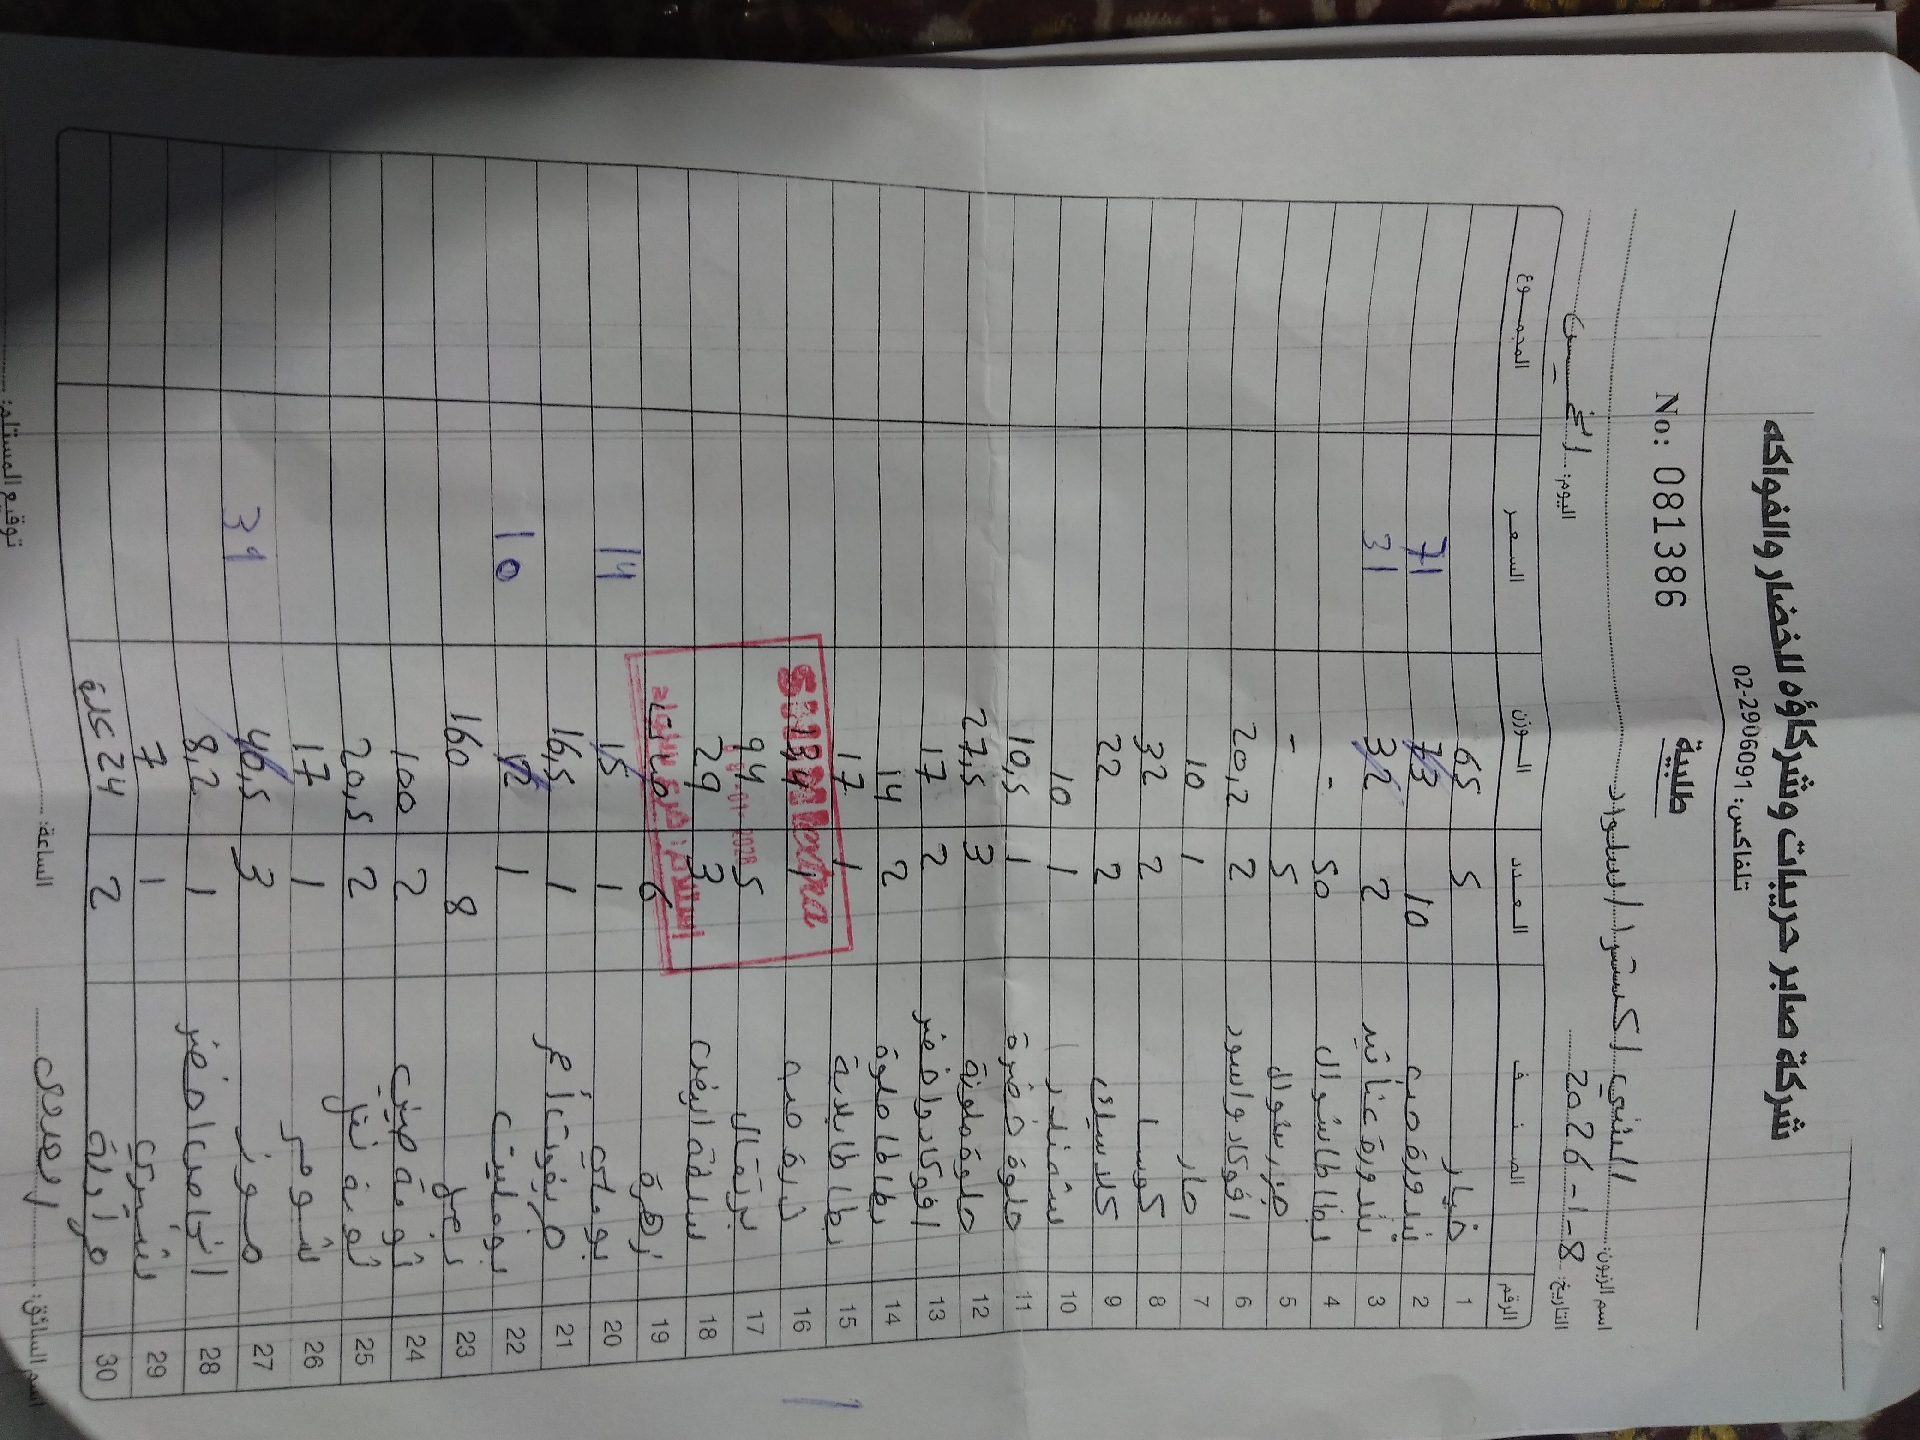 شركة صابر حريبات وشركاؤه للخضار والفواكه
تلفاكس: 02-2906091
طلبية
No: 081386
اسم الزبون: الشني اكسترا البلواد
التاريخ: 8-1-2026 اليوم: الخميس
الرقم الصنف العدد الوزن السعر المجموع
1 خيار 5 65
2 بندورة حب 10 73 71
3 بندورة عناقيد 2 32 31
4 بطاطا شوال 50 -
5 جزر شوال 5 -
6 افوكادو اسود 2 20,2
7 حار 1 10
8 كوسا 2 32
9 كلاسيك 2 22
10 شمندر 1 10
11 حلوة خضرة 1 10,5
12 حلوة ملونة 3 27,5
13 افوكادو اخضر 2 17
14 بطاطا حلوة 2 14
15 بطاطا بلدية 1 17
16 ذرة حب 1
17 برتقال 5 94
18 ملفوف ابيض 3 29
19 زهرة 6
20 بوملي 1 15 14
21 جريفوت أحمر 1 16,5
22 بوميلت 1 12 10
23 بصل 8 160
24 ثومة صيني 2 100
25 ثومة نتل 2 20,5
26 شومر 1 17
27 موز 3 40,5 39
28 اجاص اخضر 1 8,2
29 بشري 1 7
30 2 24
SHINI extra
01-2026
اسم السائق: الساعة: توقيع المستلم: